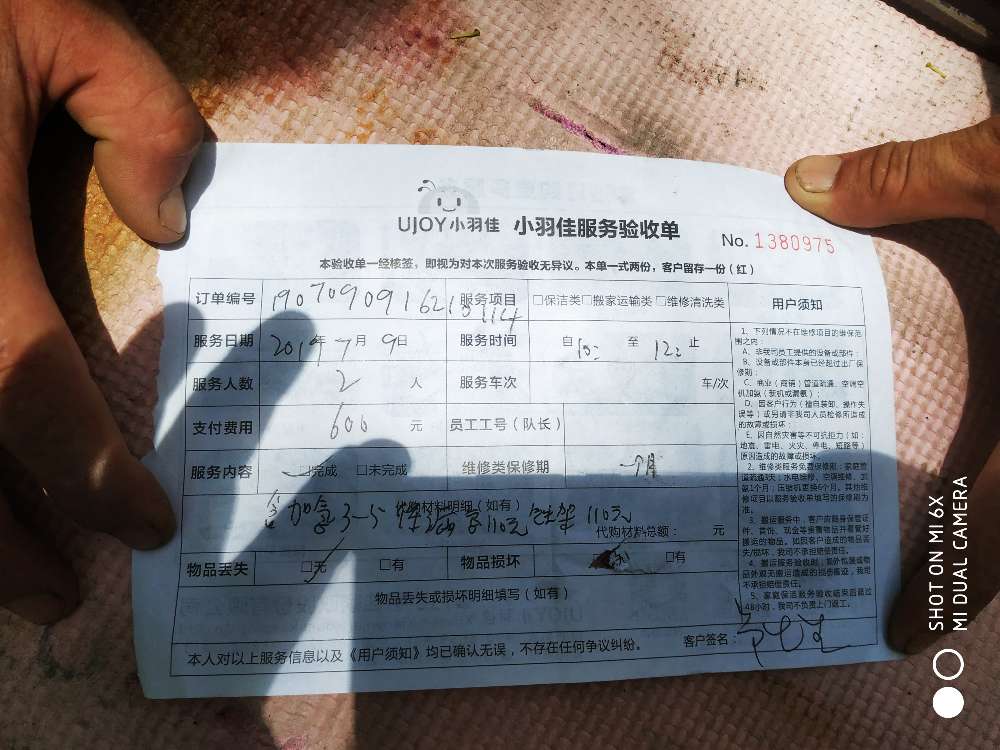 UJOY小羽佳 小羽佳服务验收单
No. 1380975
本验收单一经核签，即视为对本次服务验收无异议。本单一式两份，客户留存一份（红）
订单编号 服务项目 □保洁类□搬家运输类□维修清洗类 用户须知
服务日期 2019年7月9日 服务时间 自 至 止
服务人数 2 人 服务车次 车/次
支付费用 600 元 员工工号（队长）
服务内容 □完成 □未完成 维修类保修期 一个月
代购材料明细（如有）
代购材料总额： 元
物品丢失 □无 □有 物品损坏 □有
物品丢失或损坏明细填写（如有）
客户签名：
本人对以上服务信息以及《用户须知》均已确认无误，不存在任何争议纠纷。
1、下列情况不在维修项目的维保范
围之内：
A、非我司员工提供的设备或部件；
B、设备或部件本身已经超过出厂保
修期；
C、商业（商铺）管道疏通、空调空
机加氨（新机或漏氨）；
D、因客户行为（擅自装卸、操作失
误等）或另请非我司人员检修所造成
的故障或损坏；
E、因自然灾害等不可抗拒力（如：
地震、雷电、火灾、停电、短路等）
原因造成的故障或损坏。
2、维修类服务免费保修期：家庭管
3、搬运服务中，客户应随身保管证
件、首饰、现金等贵重物品并看管好
搬运的物品，如因客户造成的物品丢
失/损坏，我司不承担赔偿责任。
不承担赔偿责任。
5、家庭保洁服务验收结束后超过
48小时，我司不负责上门返工。
SHOT ON MI 6X
MI DUAL CAMERA